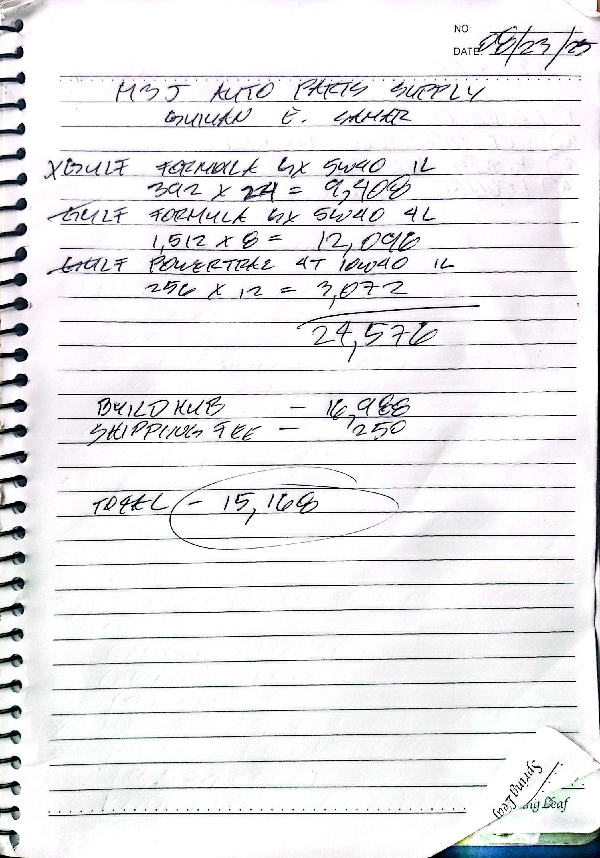 NO
DATE 08/23/25
M3J AUTO PARTS SUPPLY
GUIUAN E. SAMAR
XGULF FORMULA GX 5W40 1L
392 X 24 = 9,408
GULF FORMULA GX 5W40 4L
1,512 X 8 = 12,096
GULF POWERTRAC 4T 10W40 1L
256 X 12 = 3,072
24,576
BUILDHUB - 16,988
SHIPPING FEE - 250
TOTAL - 15,168
Spring Leaf
ing Leaf